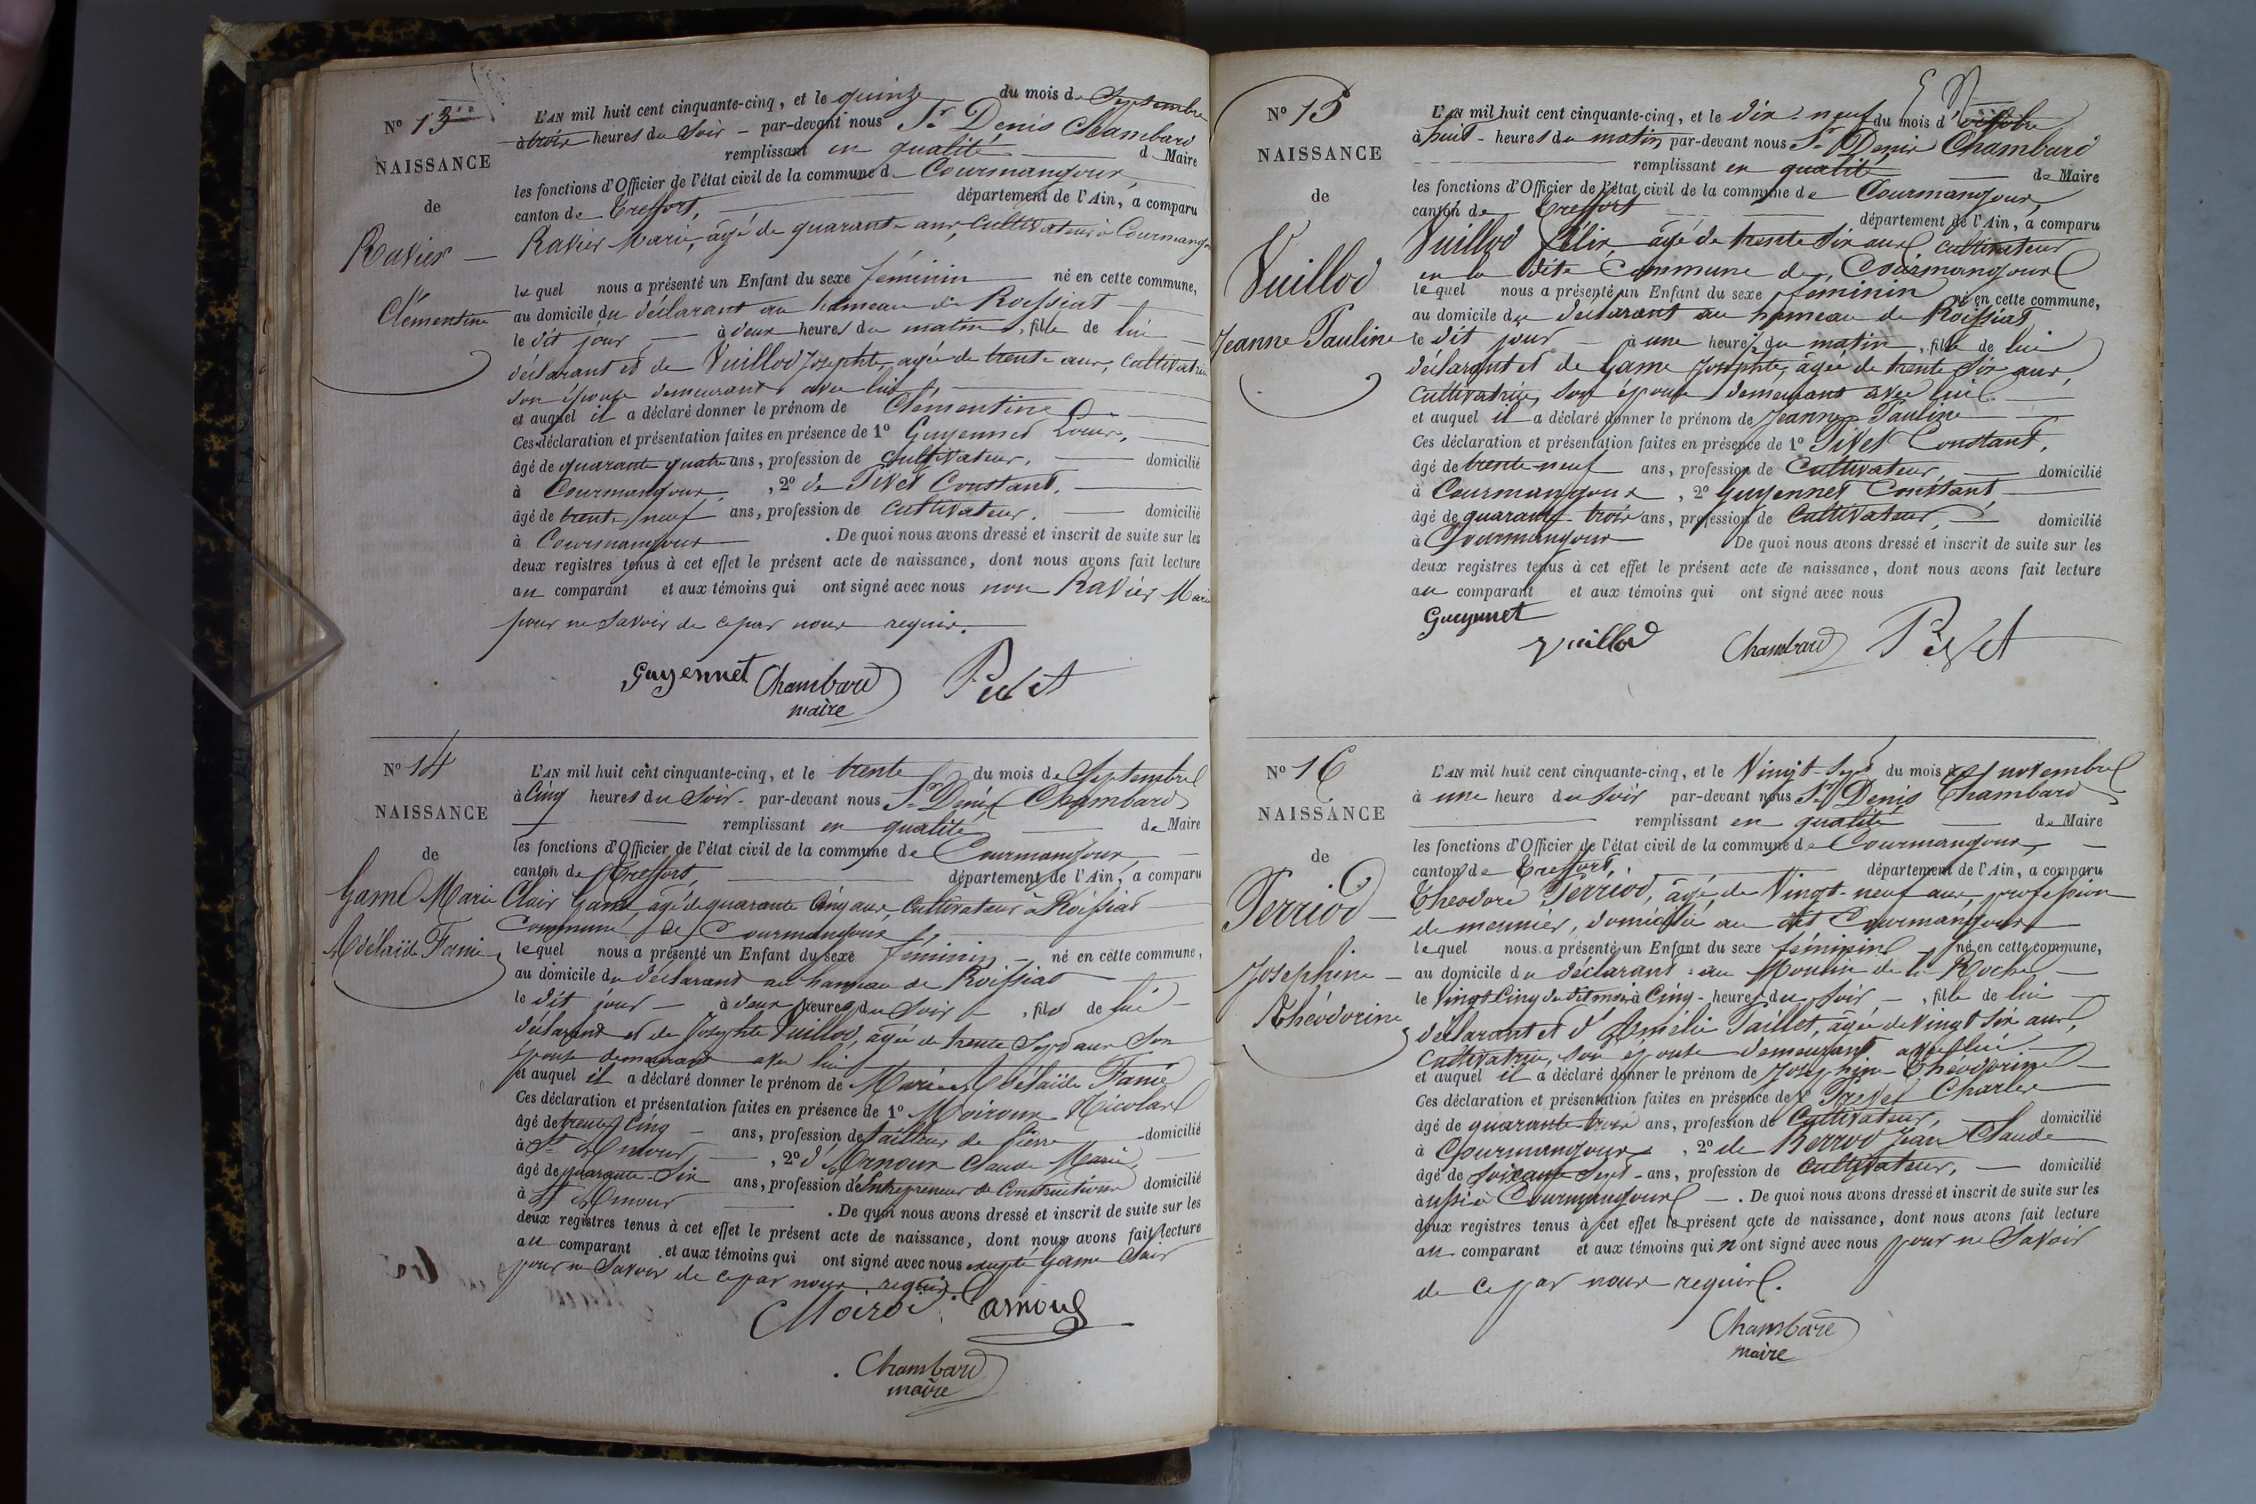 Nº 13
NAISSANCE
de
Ravier
Clémentine
L'AN mil huit cent cinquante-cinq, et le quinze du mois de Septembre
à trois heures du Soir - par-devant nous Sr Denis Chambard
remplissant en qualité de Maire
les fonctions d'Officier de l'état civil de la commune de Courmangoux
canton de Treffort, département de l'Ain, a comparu
Ravier Marie, âgé de quarante ans, Cultivateur à Courmangoux
lequel nous a présenté un Enfant du sexe féminin né en cette commune,
au domicile du déclarant au hameau de Roissiat
le dit jour à deux heures du matin, fille de lui
déclarant et de Vuillod Josephte, agée de trente ans, Cultivatrice
son épouse demeurant avec lui,
et auquel il a déclaré donner le prénom de Clémentine
Ces déclaration et présentation faites en présence de 1º Guyennet
âgé de quarante quatre ans, profession de Cultivateur, domicilié
à Courmangoux, 2º de Pivet Constant,
âgé de trente neuf ans, profession de Cultivateur, domicilié
à Courmangoux. De quoi nous avons dressé et inscrit de suite sur les
deux registres tenus à cet effet le présent acte de naissance, dont nous avons fait lecture
au comparant et aux témoins qui ont signé avec nous non Ravier Marie
pour ne Savoir de ce par nous requis.
Guyennet Chambard Pivet
maire
Nº 14
NAISSANCE
de
Game Marie
Adélaïde Fanie
L'AN mil huit cent cinquante-cinq, et le trente du mois de Septembre
à Cinq heures du Soir - par-devant nous Sr Denis Chambard
remplissant en qualité de Maire
les fonctions d'Officier de l'état civil de la commune de Courmangoux,
canton de Treffort, département de l'Ain, a comparu
Clair Game, âgé de quarante Cinq ans, Cultivateur à Roissiat
Commune de Courmangoux,
lequel nous a présenté un Enfant du sexe féminin né en cette commune,
au domicile du déclarant au hameau de Roissiat
le dit jour - à deux heures du Soir, fille de lui
déclarant et de Josephte Vuillod, âgée de trente Sept ans Son
épouse demeurant avec lui
et auquel il a déclaré donner le prénom de Marie Adélaïde Fanie
Ces déclaration et présentation faites en présence de 1º Moiroux Nicolas
âgé de trente Cinq ans, profession de tailleur de Pierre domicilié
à St Amour, 2º d'Arnoux Claude Marie,
âgé de quarante-Six ans, profession d'Entrepreneur de Constructions domicilié
à St Amour. De quoi nous avons dressé et inscrit de suite sur les
deux registres tenus à cet effet le présent acte de naissance, dont nous avons fait lecture
au comparant et aux témoins qui ont signé avec nous excepté Game Clair
pour ne Savoir de ce par nous requis.
Moiroux arnoux
Chambard
maire
Nº 15
NAISSANCE
de
Vuillod
Jeanne Pauline
L'AN mil huit cent cinquante-cinq, et le dix-neuf du mois d'octobre
à huit heures du matin par-devant nous Sr Denis Chambard
remplissant en qualité de Maire
les fonctions d'Officier de l'état civil de la commune de Courmangoux,
canton de Treffort département de l'Ain, a comparu
Vuillod Félix, âgé de trente Six ans cultivateur
en la dite Commune de Courmangoux
lequel nous a présenté un Enfant du sexe féminin né en cette commune,
au domicile du déclarant au hameau de Roissiat
le dit jour - à une heure du matin, fille de lui
déclarant et de Game Josephte, âgée de trente Six ans,
Cultivatrice, son épouse demeurant avec lui
et auquel il a déclaré donner le prénom de Jeanne Pauline
Ces déclaration et présentation faites en présence de 1º Pivet Constant,
âgé de trente-neuf ans, profession de Cultivateur, domicilié
à Courmangoux, 2º Guyennet Constant
âgé de quarante-trois ans, profession de Cultivateur, domicilié
à Courmangoux De quoi nous avons dressé et inscrit de suite sur les
deux registres tenus à cet effet le présent acte de naissance, dont nous avons fait lecture
au comparant et aux témoins qui ont signé avec nous
Guyennet
Vuillod Chambard Pivet
Nº 16
NAISSANCE
de
Perriod
Josephine
Théodorine
L'AN mil huit cent cinquante-cinq, et le Vingt-Sept du mois de novembre
à une heure du Soir par-devant nous Sr Denis Chambard
remplissant en qualité de Maire
les fonctions d'Officier de l'état civil de la commune de Courmangoux,
canton de Treffort, département de l'Ain, a comparu
Théodore Perriod, âgé de Vingt-neuf ans, profession
de meunier, domicilié au dit Courmangoux
lequel nous a présenté un Enfant du sexe féminin né en cette commune,
au domicile du déclarant au Moulin de la Roche
le Vingt Cinq du dit mois à Cinq heures du Soir, fille de lui
déclarant et d'Amélie Paillet, âgée de Vingt Six ans,
Cultivatrice, son épouse demeurant avec lui
et auquel il a déclaré donner le prénom de Josephine Théodorine
Ces déclaration et présentation faites en présence de Charles
âgé de quarante-trois ans, profession de Cultivateur, domicilié
à Courmangoux, 2º de Perriod Jean Claude
âgé de soixante-Sept ans, profession de Cultivateur, domicilié
aussi à Courmangoux. De quoi nous avons dressé et inscrit de suite sur les
deux registres tenus à cet effet le présent acte de naissance, dont nous avons fait lecture
au comparant et aux témoins qui n'ont signé avec nous pour ne Savoir
de ce par nous requis.
Chambard
maire